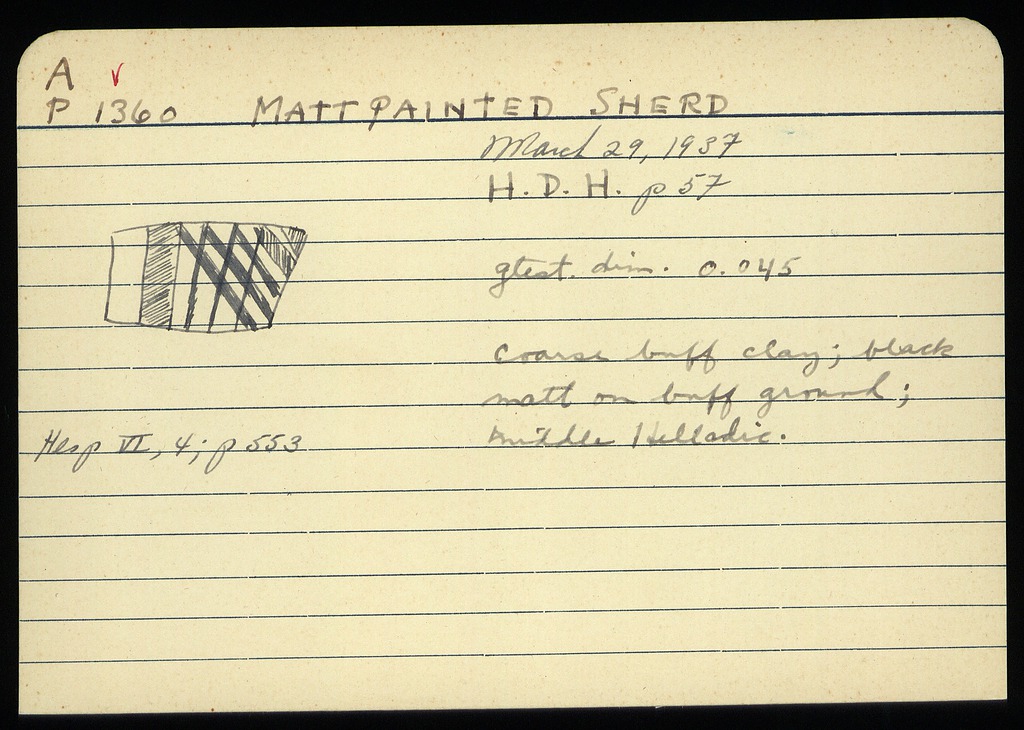 A ✓
P 1360 MATTPAINTED SHERD
March 29, 1937
H. D. H. p 57
gtest. dim. 0.045
coarse buff clay; black
matt on buff ground;
Middle Helladic.
Hesp VI, 4; p 553